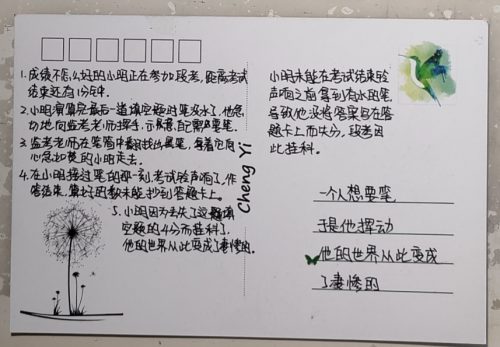 1. 成绩不怎么好的小明正在参加段考，距离考试
结束还有1分钟。
2. 小明演算完最后一道填空题时笔没水了，他急
切地向监考老师挥手，示意需要笔。
3. 监考老师在笔筒中翻找出黑笔，拿着它向
心急如焚的小明走去。
4. 在小明接过笔的那一刻，考试铃声响了，作
答结束，算好的数未能抄到答题卡上。
5. 小明因为丢失了这题填
空题的4分而挂科了。
他的世界从此变成了凄惨的。
Cheng Yi
小明未能在考试结束铃
声响之前拿到有水的笔，
导致他没将答案写在答
题卡上而失分，段考因
此挂科。
一个人想要笔
于是他挥动
他的世界从此变成
了凄惨的